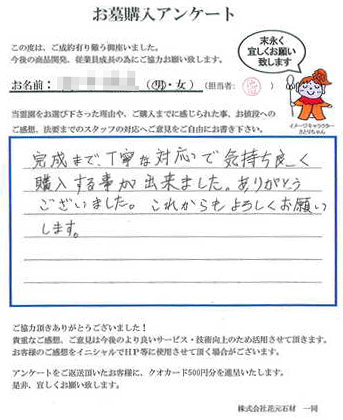 お墓購入アンケート
この度は、ご成約有り難う御座いました。
今後の商品開発、従業員成長の為にご協力お願い致します。
末永く
宜しくお願い
致します
お名前： （男・女）（担当者: ）
イメージキャラクター
さとりちゃん
当霊園をお選び下さった理由や、ご購入までに感じられた事、お値段への
ご感想、法要までのスタッフの対応へご意見をご自由にお書き下さい。
完成まで、丁寧な対応で気持ち良く
購入する事が出来ました。ありがとう
ございました。これからもよろしくお願い
します。
ご協力頂きありがとうございました！
貴重なご感想、ご意見は今後のより良いサービス・技術向上のため活用させて頂きます。
お客様のご感想をイニシャルでHP等に使用させて頂く場合がございます。
アンケートをご返送頂いたお客様に、クオカード500円分を進呈いたします。
是非、宜しくお願い致します。
株式会社花元石材　一同